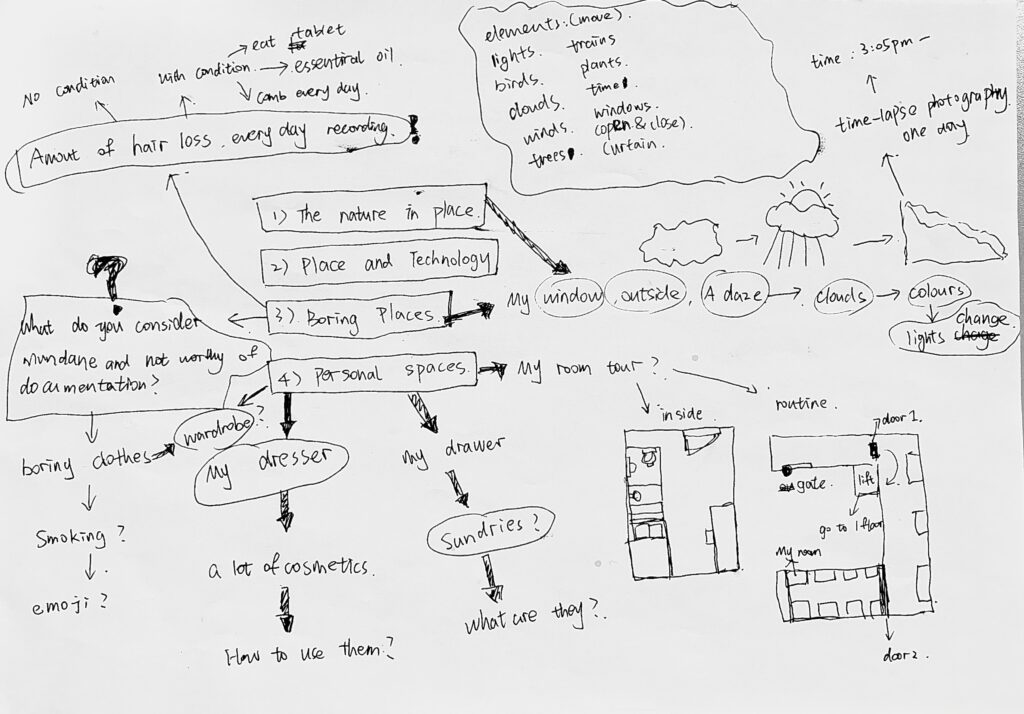 eat tablet
No condition
with condition
essentiral oil.
comb every day.
Amout of hair loss. every day recording.
elements: (move).
lights. trains
birds. plants.
clouds. times
winds. windows.
(open & close).
trees. curtain.
time : 3:05pm –
time-lapse photography.
one day.
1) The nature in place.
2) Place and Technology
3) Boring Places.
4) Personal spaces.
My window, outside, A daze
clouds
colours
lights change
What do you consider
mundane and not worthy of
documentation?
boring clothes
wardrobe?
Smoking?
emoji?
My dresser
a lot of cosmetics.
How to use them?
my drawer
Sundries?
what are they?
My room tour?
inside
routine.
door 1.
gate.
lift
go to 1 floor
My room
door 2.